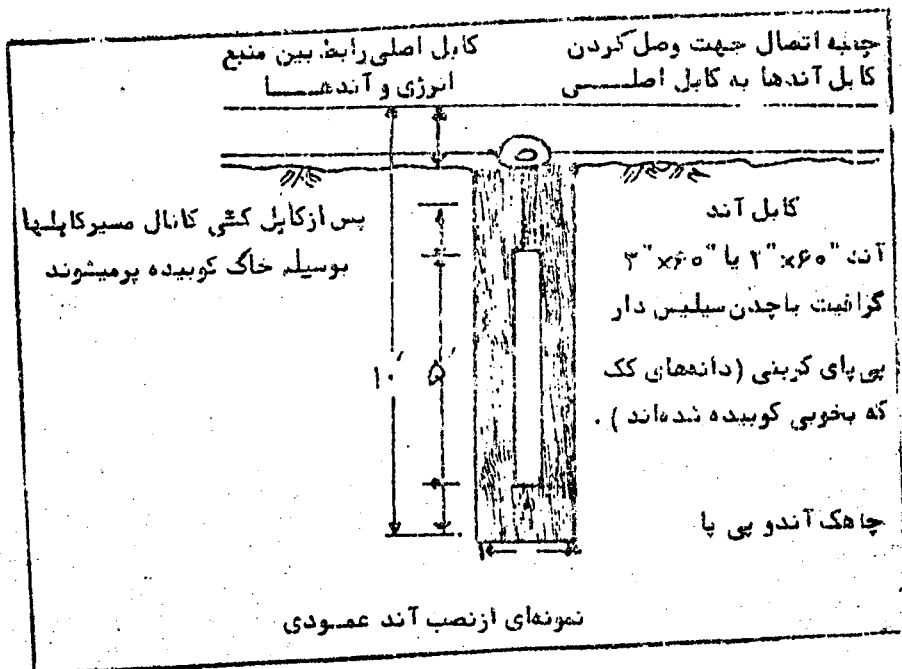 جعبه اتصال جهت وصل کردن
کابل آندها به کابل اصلـــــی
کابل اصلی رابط بین منبع
انرژی و آندهــــــا
پس از کابل کشی کانال مسیر کابلها
بوسیله خاک کوبیده پر میشوند
کابل آند
آند "۶۰×"۲ یا "۶۰×"۳
گرافیت یا چدن سیلیس دار
پی پای کربنی (دانه‌های کک
که بخوبی کوبیده شده‌اند ) .
۱۰′
۵′
چاهک آند و پی پا
نمونه‌ای از نصب آند عمــودی